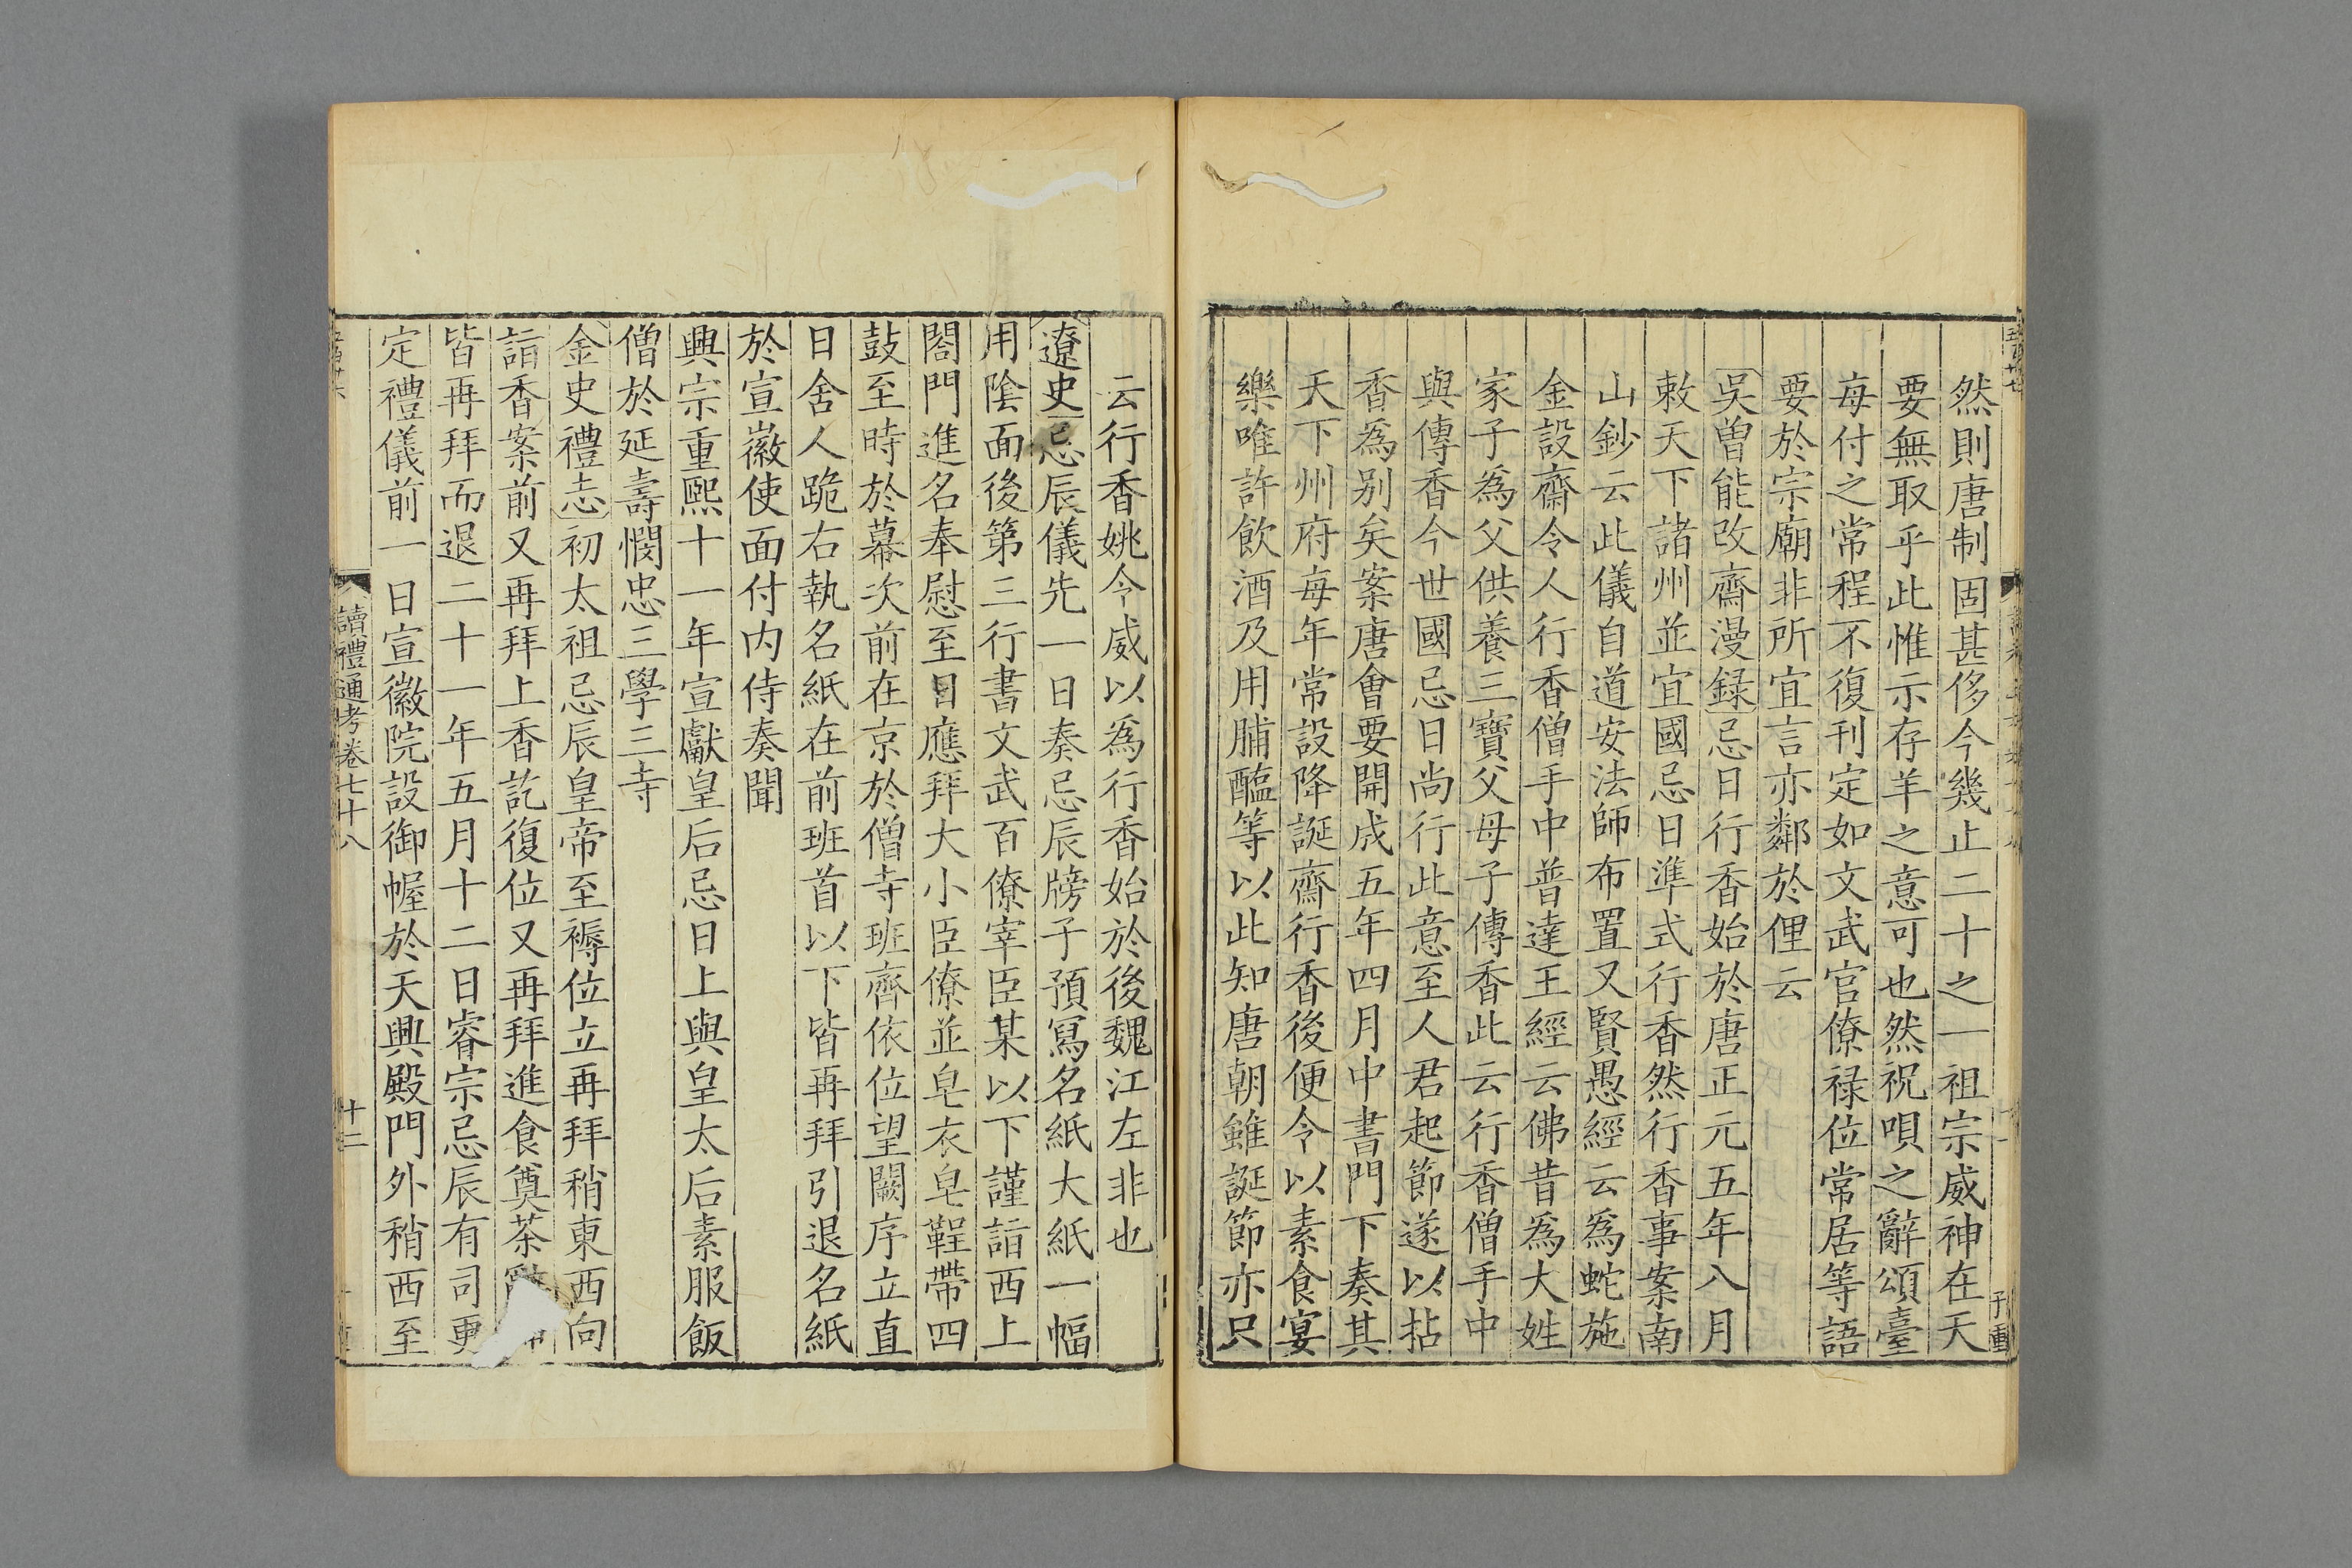 然則唐制固甚侈今幾止二十之一祖宗威神在天
要無取乎此惟示存羊之意可也然祝唄之辭頌臺
每付之常程不復刊定如文武官僚禄位常居等語
要於宗廟非所宜言亦鄰於俚云
吳曾能改齋漫録忌日行香始於唐正元五年八月
敕天下諸州並宜國忌日準式行香然行香事案南
山鈔云此儀自道安法師布置又賢愚經云爲蛇施
金設齋令人行香僧手中普達王經云佛昔爲大姓
家子爲父供養三寶父母子傳香此云行香僧手中
與傳香今世國忌日尚行此意至人君起節遂以拈
香爲别矣案唐會要開成五年四月中書門下奏其
天下州府每年常設降誕齋行香後便令以素食宴
樂唯許飲酒及用脯醢等以此知唐朝雖誕節亦只
子重
云行香姚令威以爲行香始於後魏江左非也
遼史忌辰儀先一日奏忌辰牓子預寫名紙大紙一幅
用陰面後第三行書文武百僚宰臣某以下謹詣西上
閤門進名奉慰至日應拜大小臣僚並皂衣皂鞓帶四
鼓至時於幕次前在京於僧寺班齊依位望闕序立直
日舍人跪右執名紙在前班首以下皆再拜引退名紙
於宣徽使面付内侍奏聞
興宗重熙十一年宣獻皇后忌日上與皇太后素服飯
僧於延壽憫忠三學三寺
金史禮志初太祖忌辰皇帝至褥位立再拜稍東西向
詣香案前又再拜上香訖復位又再拜進食奠茶
皆再拜而退二十一年五月十二日睿宗忌辰有司更
定禮儀前一日宣徽院設御幄於天興殿門外稍西至
讀禮通考卷七十八
十二